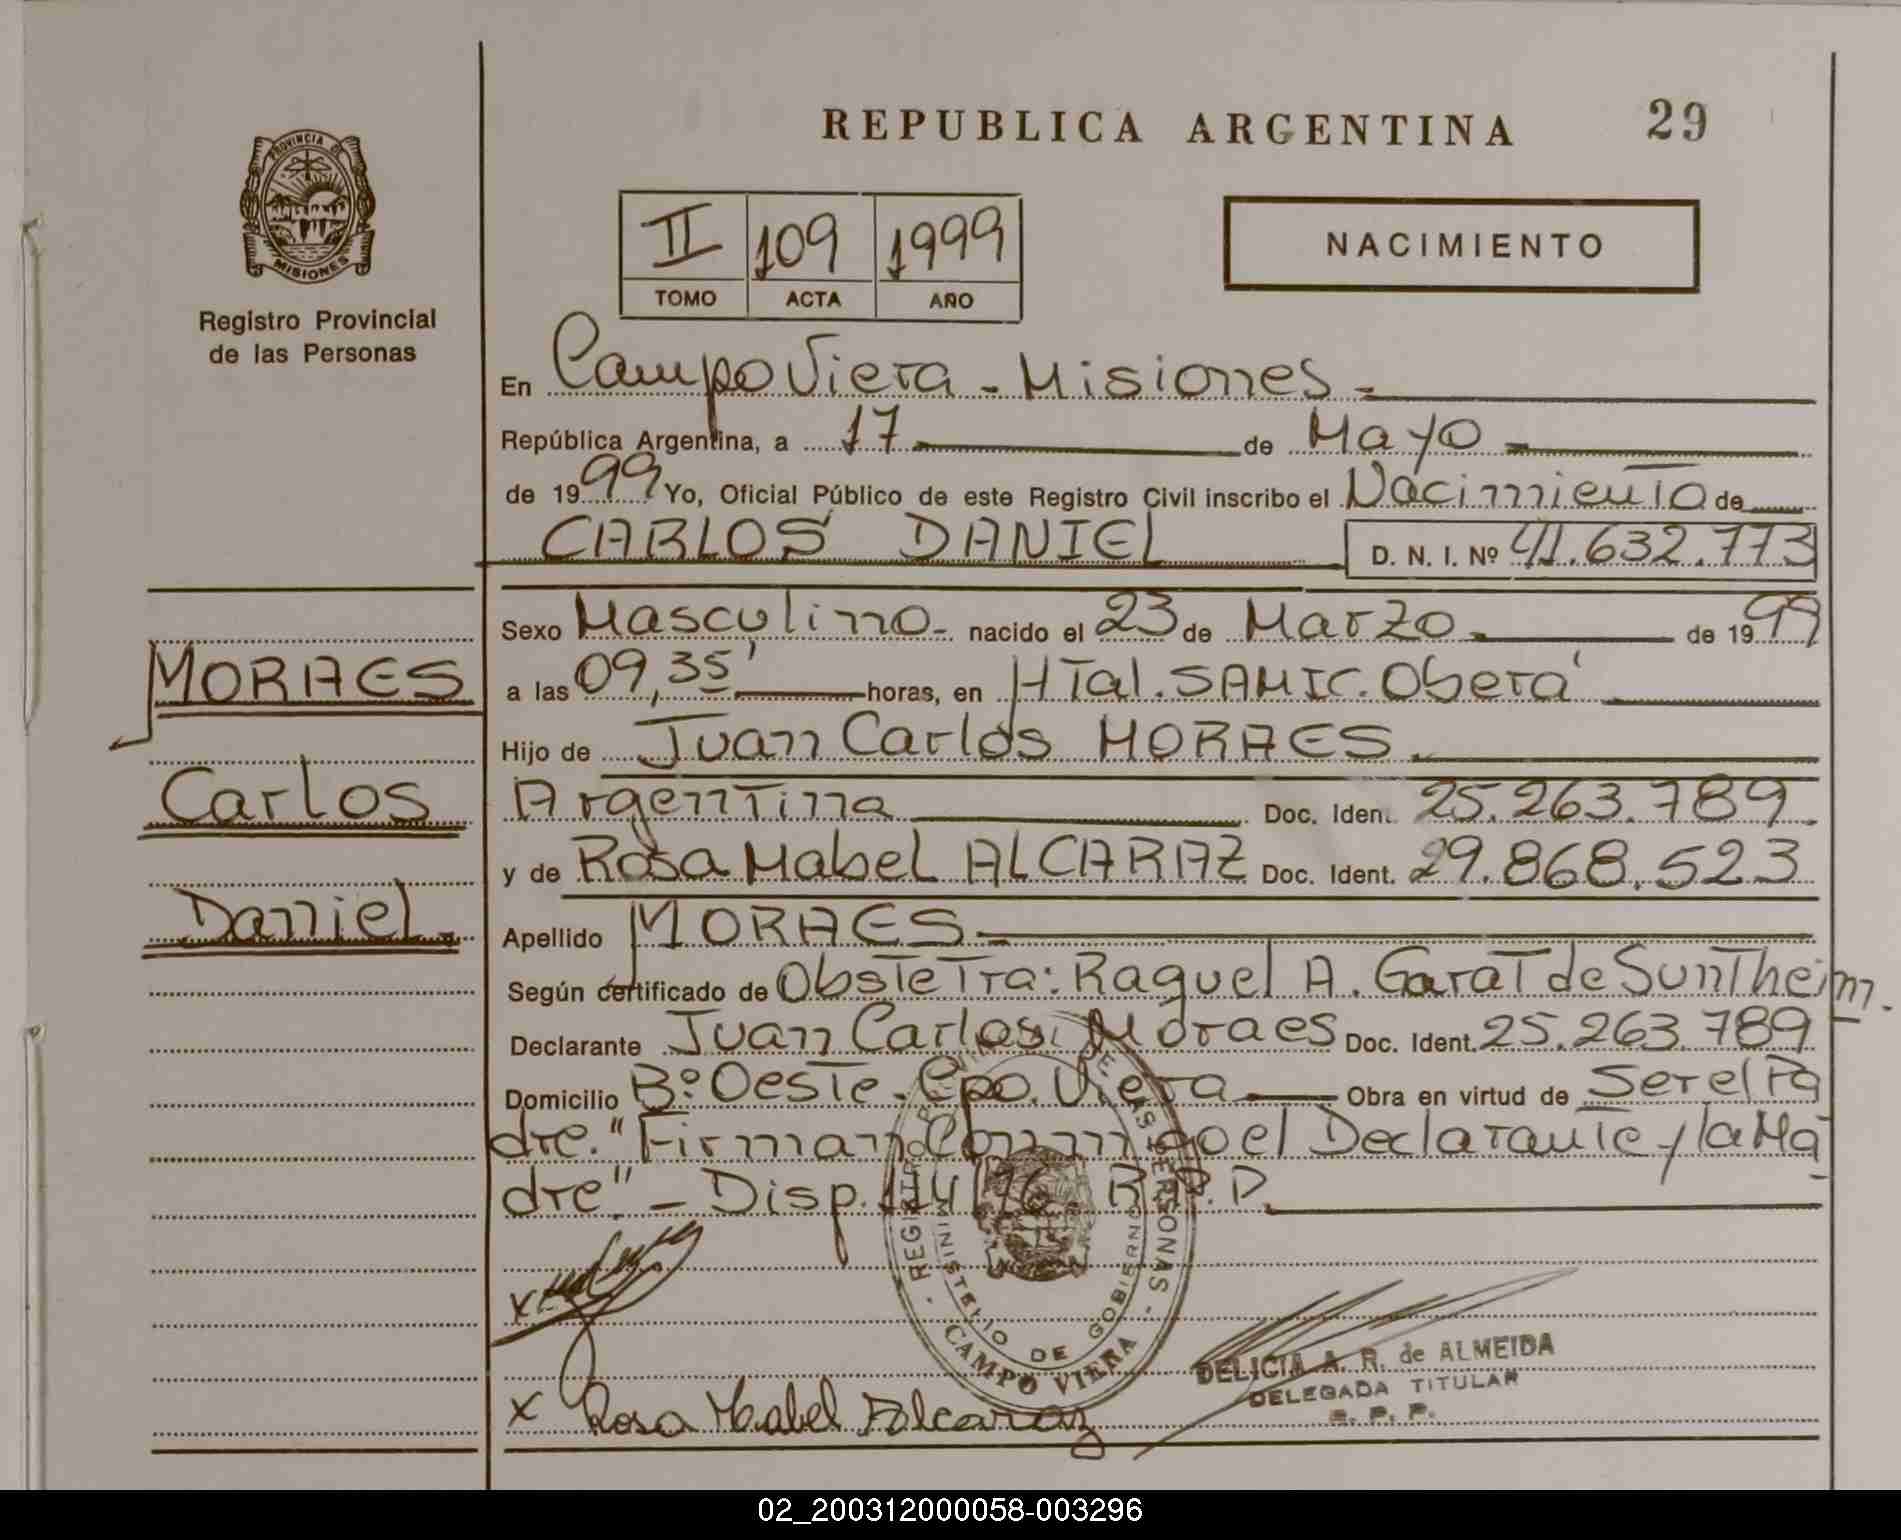 REPUBLICA ARGENTINA 29
PROVINCIA DE
MISIONES
Registro Provincial
de las Personas
II 109 1999
TOMO ACTA AÑO
NACIMIENTO
En Campo Viera - Misiones -
República Argentina, a 17 de Mayo
de 1999 Yo, Oficial Público de este Registro Civil inscribo el Nacimiento de
CARLOS DANIEL D. N. I. Nº 41.632.773
Sexo Masculino - nacido el 23 de Marzo de 1999
a las 09,35' horas, en HTal. SAMIC. Oberá
Hijo de Juan Carlos MORAES
Argentina Doc. Iden. 25.263.789
y de Rosa Mabel ALCARAZ Doc. Ident. 29.868.523
Apellido MORAES
Según certificado de Obstetra: Raquel A. Garat de Suntheim.
Declarante Juan Carlos Moraes Doc. Ident. 25.263.789
Domicilio Bº Oeste - Cpo. Viera Obra en virtud de Ser el Pa
dre. "Firman Conmigo el Declarante y la Ma
dre". - Disp. R.P.P.
MORAES
Carlos
Daniel.
x
x Rosa Mabel Alcaraz
REGISTRO DE LAS PERSONAS
MINISTERIO DE GOBIERNO
CAMPO VIERA
DELICIA A. R. de ALMEIDA
DELEGADA TITULAR
R. P. P.
02_200312000058-003296